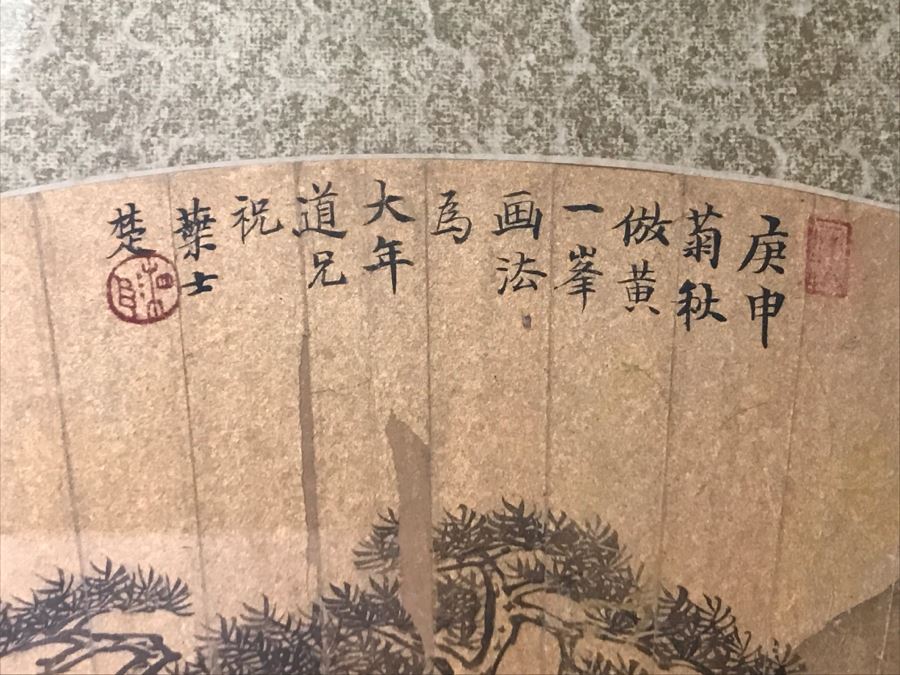 庚申
菊秋
倣黄
一峯
画法
為
大年
道兄
祝
葉士
楚